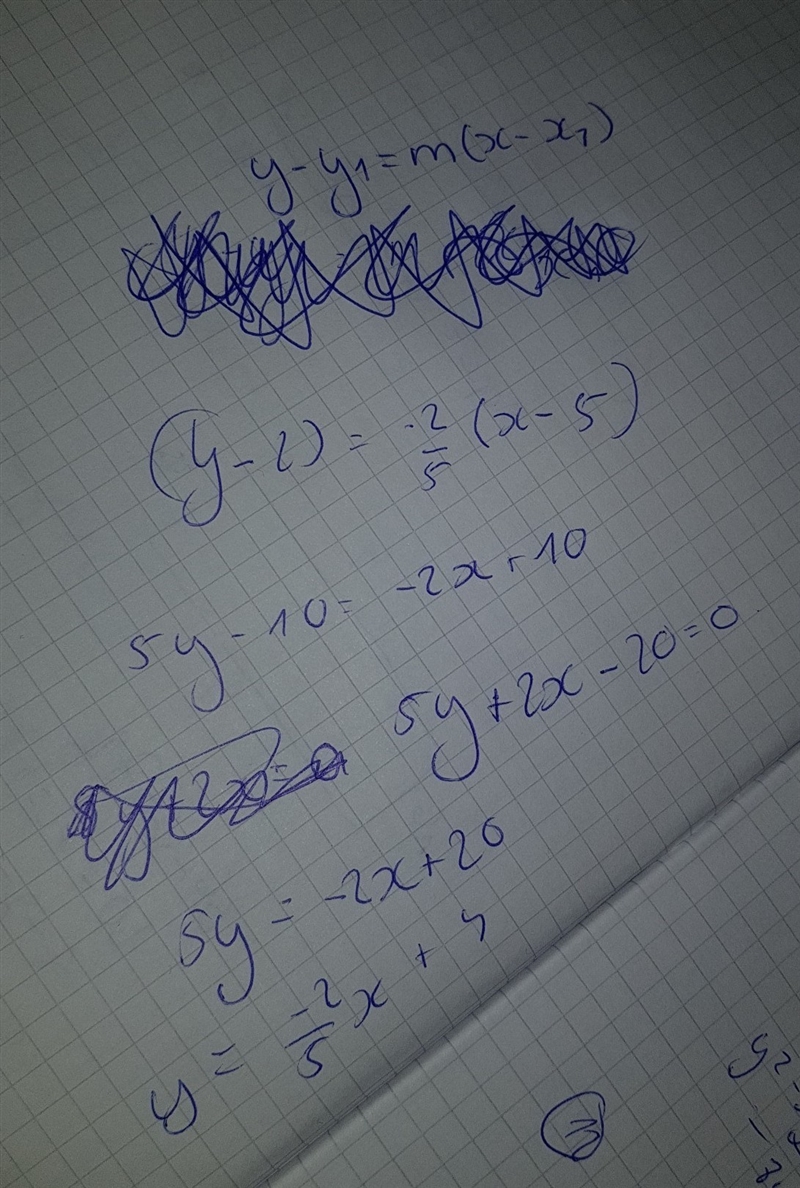 y-y₁=m(x-x₁)
(y-2) = -2/5 (x-5)
5y-10= -2x+10
5y+2x-20=0
5y = -2x+20
y = -2/5 x + 4
3